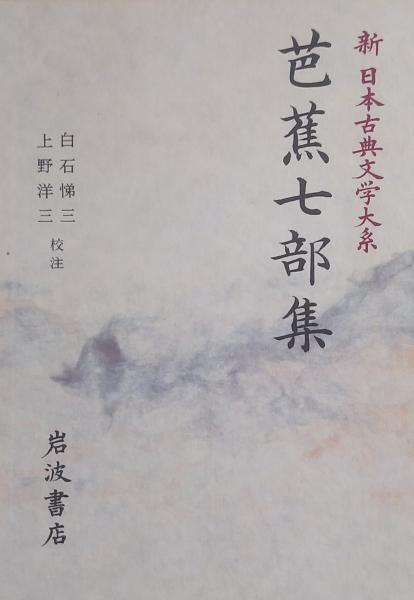 新日本古典文学大系
芭蕉七部集
白石悌三
上野洋三
校注
岩波書店